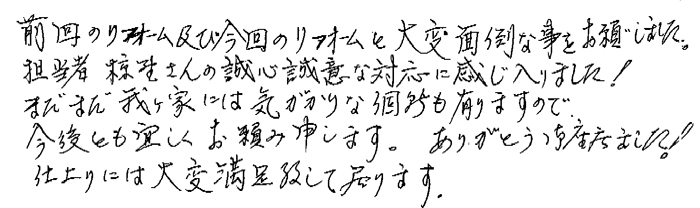 前回のリフォーム及び今回のリフォームと大変面倒な事をお願いしました。
担当者 さんの誠心誠意な対応に感じ入りました!
まだまだ我ヶ家には気がかりな個所も有りますので、
今後とも宜しくお頼み申します。ありがとう御座居ました!!
仕上りには大変満足致して居ります。